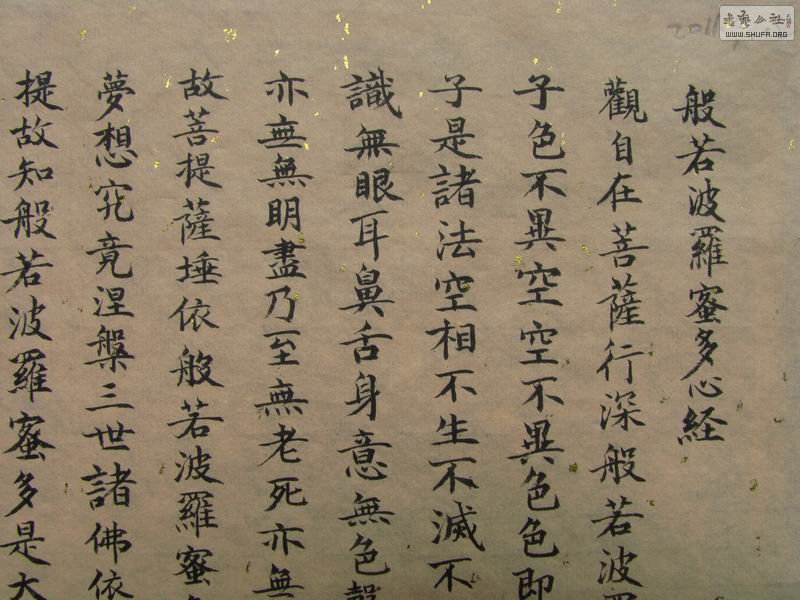 般若波羅蜜多心経
觀自在菩薩行深般若波羅
子色不異空空不異色色即
子是諸法空相不生不滅不
識無眼耳鼻舌身意無色聲
亦無無明盡乃至無老死亦無
故菩提薩埵依般若波羅蜜多
夢想究竟涅槃三世諸佛依
提故知般若波羅蜜多是大
2011
書藝公社
WWW.SHUFA.ORG